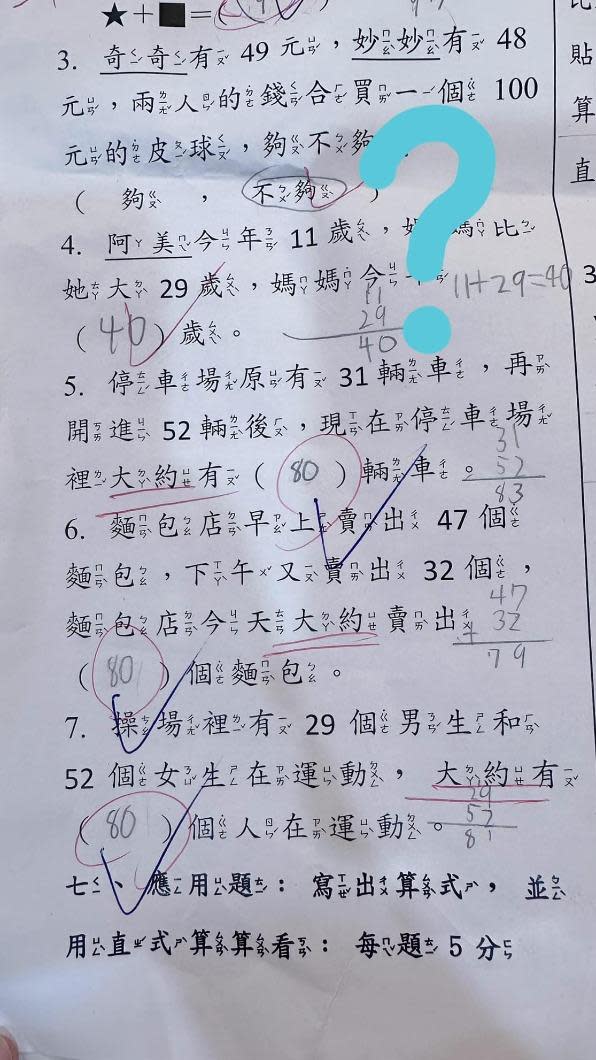 ★+■=(
3. 奇奇有 49 元,妙妙有 48
元,兩人的錢合買一個 100
元的皮球,夠不夠
( 夠 , 不夠 )
4. 阿美今年 11 歲,媽媽比
她大 29 歲,媽媽今 11+29=40
(40)歲。
11
29
40
5. 停車場原有 31 輛車,再
開進 52 輛後,現在停車場
裡大約有( 80 )輛車。
31
52
83
6. 麵包店早上賣出 47 個
麵包,下午又賣出 32 個,
麵包店今天大約賣出
( 80 )個麵包。
47
+ 32
79
7. 操場裡有 29 個男生和
52 個女生在運動,大約有
( 80 )個人在運動。
29
52
81
七、應用題:寫出算式,並
用直式算算看:每題 5 分
貼
算
直
3
?